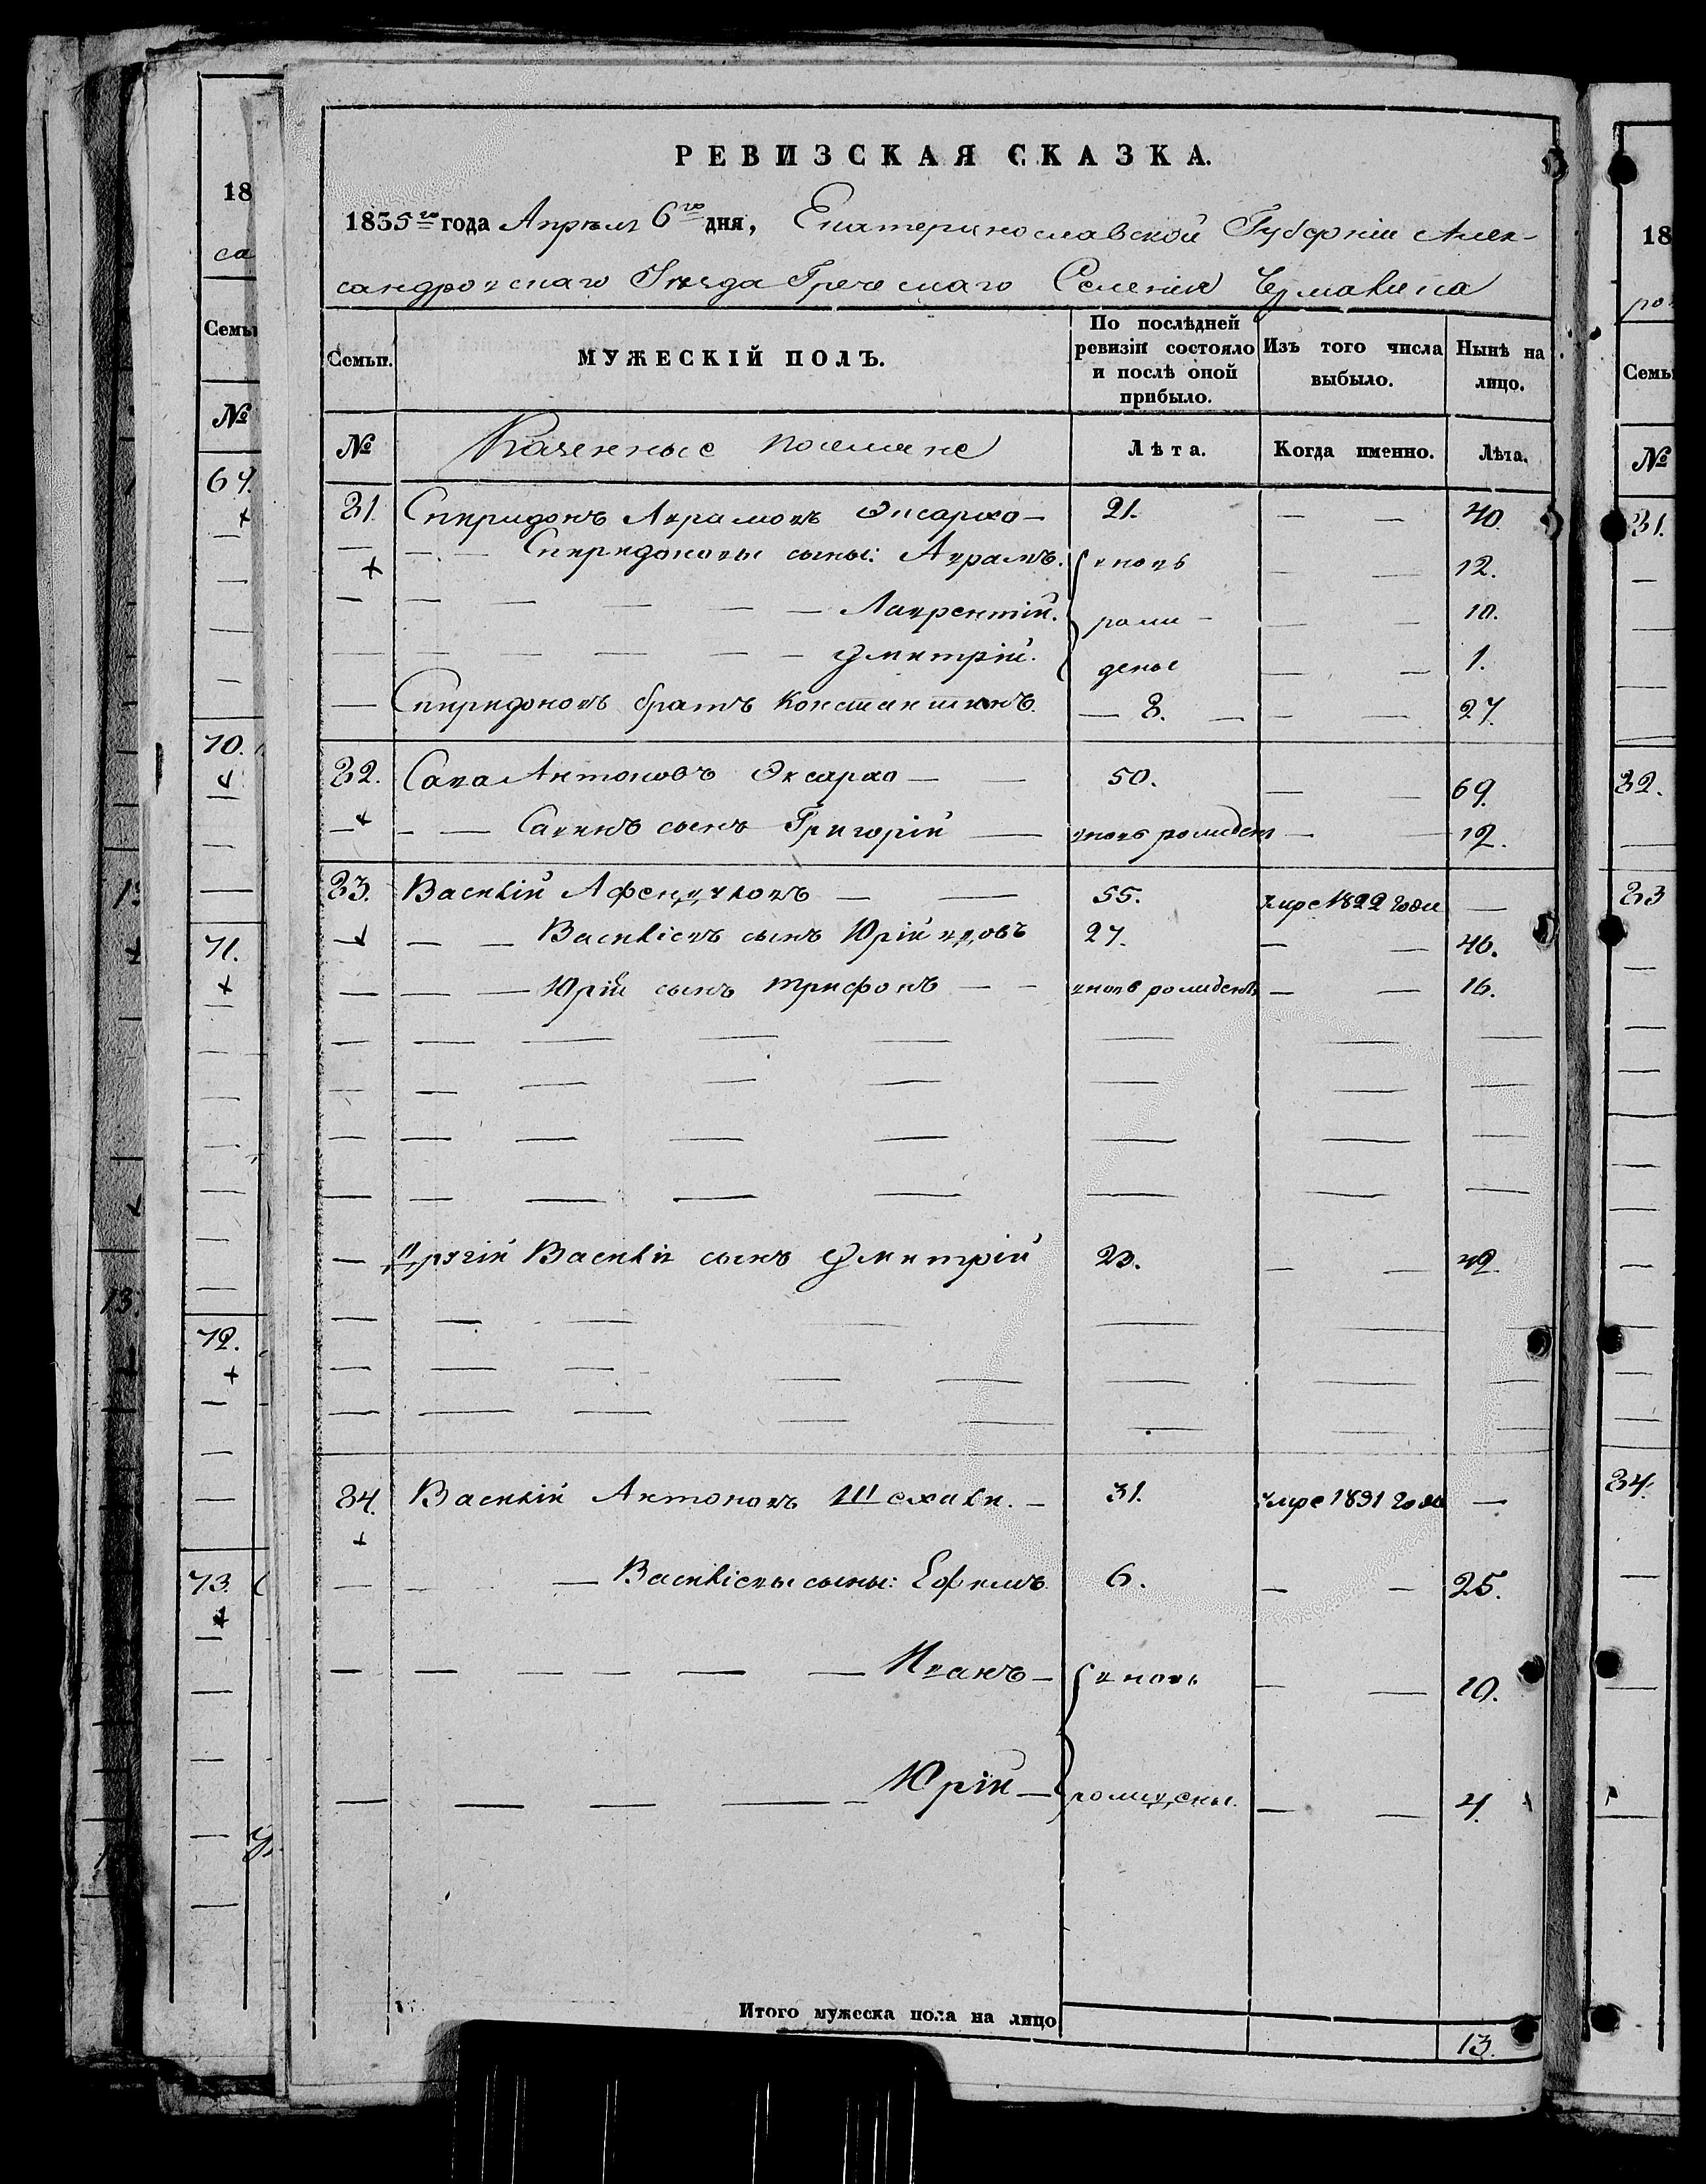 РЕВИЗСКАЯ СКАЗКА.
1835го года Апрѣля 6го дня, Екатеринославской Губерніи Алек-
сандровскаго Уѣзда Греческаго Селенія Чермалика
Семьи. МУЖЕСКІЙ ПОЛЪ. По послѣдней ревизіи состояло и послѣ оной прибыло. Изъ того числа выбыло. Нынѣ на лицо.
№ Казенные поселяне Лѣта. Когда именно. Лѣта.
31. Спиридонъ Аврамовъ Эксархо — 21. — — 40.
Спиридоновы сыны: Аврамъ. вновь — — 12.
Лаврентій. рожи — — — 10.
Дмитрій. дены — — 1.
Спиридоновъ братъ Константинъ. — 8. — — — 27.
32. Сава Антоновъ Эксархо — — 50. — — 69.
Савинъ сынъ Григорій — вновь рожденъ — — 12.
33. Василій Афендиковъ — — 55. умре 1822 года —
Васильевъ сынъ Юрій вдовъ 27. — — 46.
Юрій сынъ Трифонъ — — вновь рожденъ — — 16.
Другій Василія сынъ Дмитрій 23. — — 42.
34. Василій Антоновъ — 31. умре 1831 года —
Васильевы сыны: Ефимъ 6. — — 25.
Иванъ — вновь — — 10.
Юрій — рождены. — — 4.
Итого мужеска пола на лицо 13.
18
са
Семьи
№
69.
70.
71.
72.
73.
18
ро
Семьи
№
31.
32.
33
34.